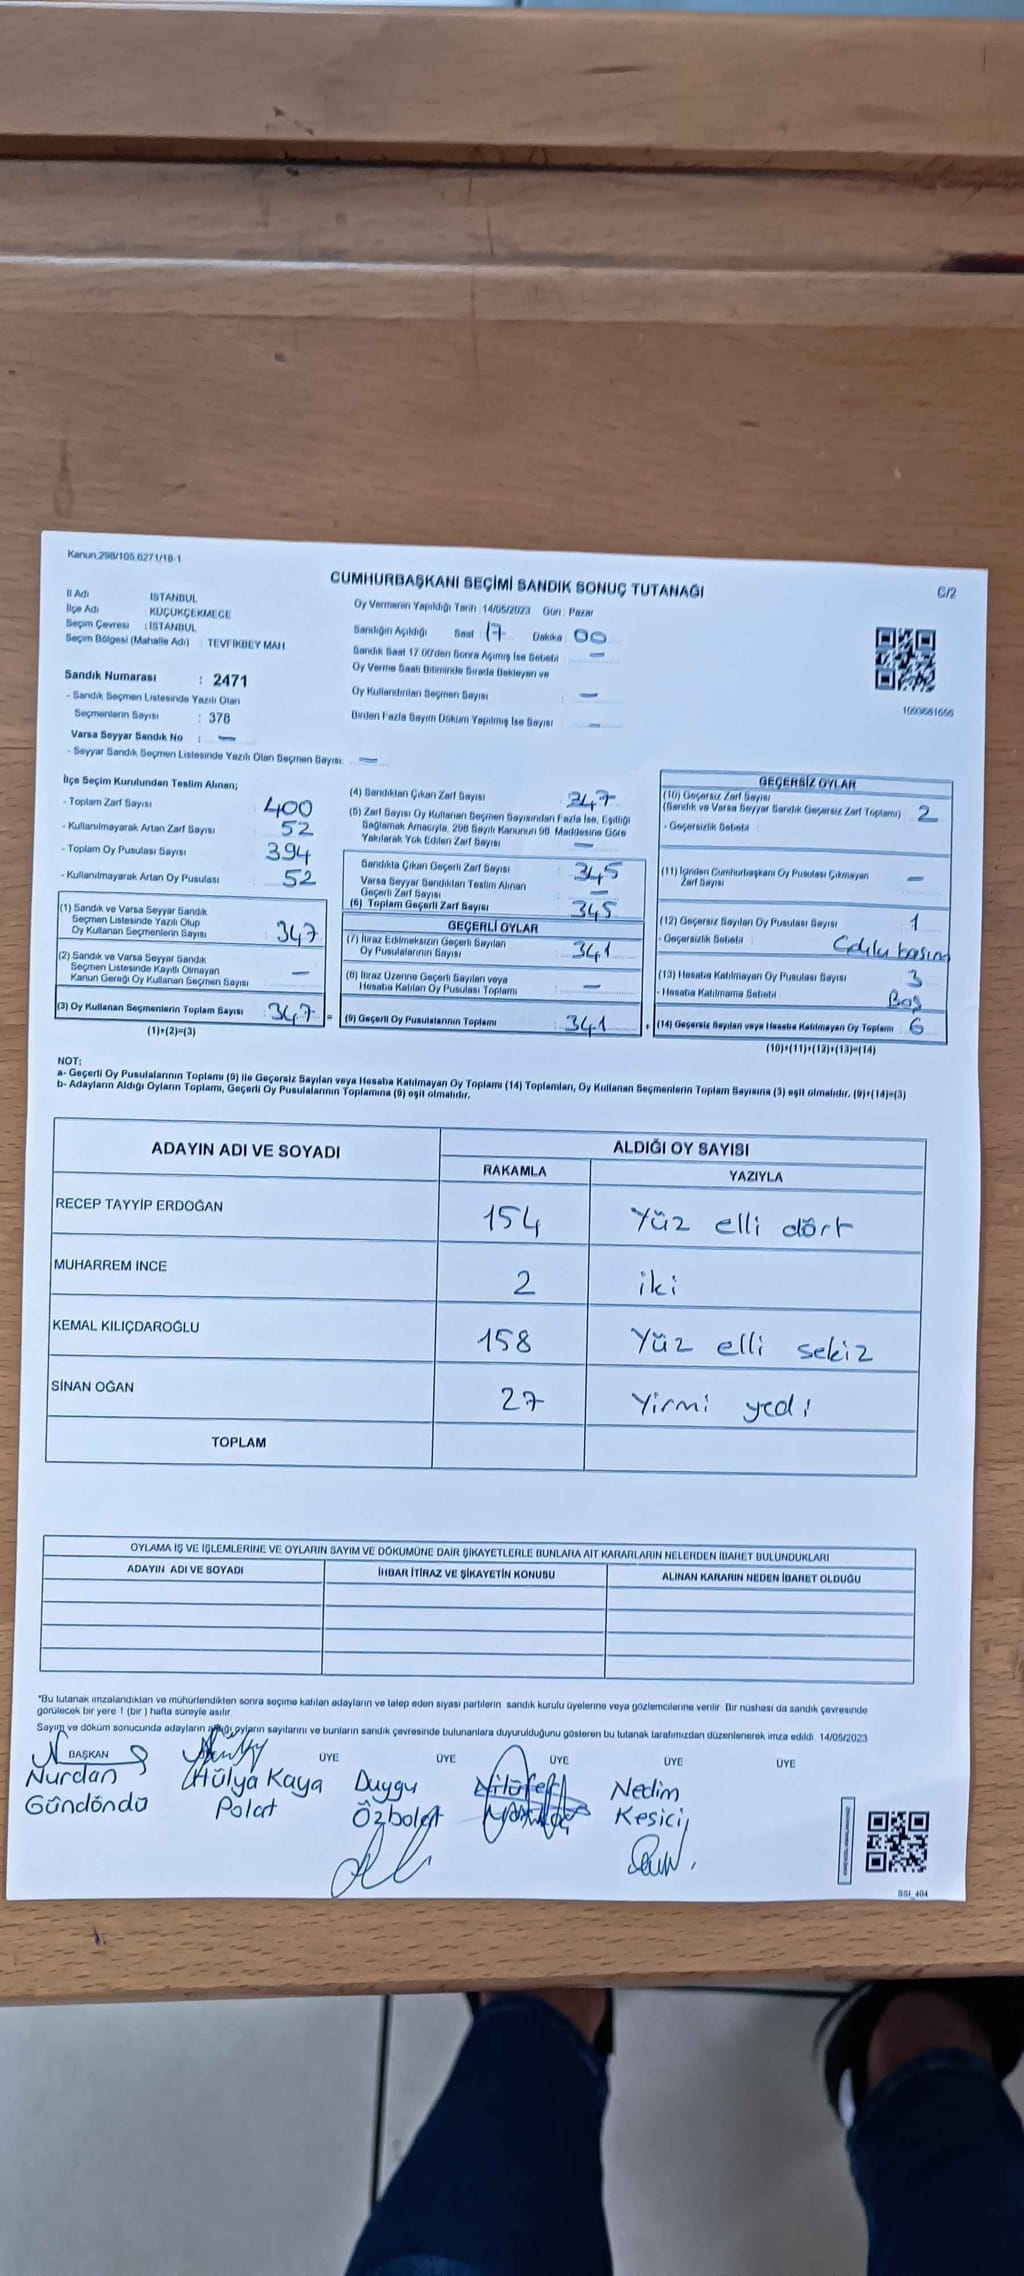 Kanun.298/105.6271/18-1
CUMHURBAŞKANI SEÇİMİ SANDIK SONUÇ TUTANAĞI
C/2
İl Adı İSTANBUL
İlçe Adı KÜÇÜKÇEKMECE
Seçim Çevresi : İSTANBUL
Seçim Bölgesi (Mahalle Adı) : TEVFİKBEY MAH
Sandık Numarası : 2471
- Sandık Seçmen Listesinde Yazılı Olan
Seçmenlerin Sayısı : 378
Varsa Seyyar Sandık No : —
- Seyyar Sandık Seçmen Listesinde Yazılı Olan Seçmen Sayısı: —
Oy Vermenin Yapıldığı Tarih : 14/05/2023 Gün : Pazar
Sandığın Açıldığı Saat : 17 Dakika : 00
Sandık Saat 17.00'den Sonra Açılmış İse Sebebi : —
Oy Verme Saati Bitiminde Sırada Bekleyen ve
Oy Kullandırılan Seçmen Sayısı : —
Birden Fazla Sayım Döküm Yapılmış İse Sayısı : —
İlçe Seçim Kurulundan Teslim Alınan;
- Toplam Zarf Sayısı : 400
- Kullanılmayarak Artan Zarf Sayısı : 52
- Toplam Oy Pusulası Sayısı : 394
- Kullanılmayarak Artan Oy Pusulası : 52
(1) Sandık ve Varsa Seyyar Sandık
Seçmen Listesinde Yazılı Olup
Oy Kullanan Seçmenlerin Sayısı : 347
(2) Sandık ve Varsa Seyyar Sandık
Seçmen Listesinde Kayıtlı Olmayan
Kanun Gereği Oy Kullanan Seçmen Sayısı : —
(3) Oy Kullanan Seçmenlerin Toplam Sayısı : 347 =
(1)+(2)=(3)
(4) Sandıktan Çıkan Zarf Sayısı : 347
(5) Zarf Sayısı Oy Kullanan Seçmen Sayısından Fazla İse, Eşitliği
Sağlamak Amacıyla, 298 Sayılı Kanunun 98. Maddesine Göre
Yakılarak Yok Edilen Zarf Sayısı : —
Sandıkta Çıkan Geçerli Zarf Sayısı : 345
Varsa Seyyar Sandıktan Teslim Alınan
Geçerli Zarf Sayısı : —
(6) Toplam Geçerli Zarf Sayısı : 345
GEÇERLİ OYLAR
(7) İtiraz Edilmeksizin Geçerli Sayılan
Oy Pusulalarının Sayısı : 341
(8) İtiraz Üzerine Geçerli Sayılan veya
Hesaba Katılan Oy Pusulası Toplamı : —
(9) Geçerli Oy Pusulalarının Toplamı : 341 +
GEÇERSİZ OYLAR
(10) Geçersiz Zarf Sayısı
(Sandık ve Varsa Seyyar Sandık Geçersiz Zarf Toplamı) : 2
- Geçersizlik Sebebi :
(11) İçinden Cumhurbaşkanı Oy Pusulası Çıkmayan
Zarf Sayısı : —
(12) Geçersiz Sayılan Oy Pusulası Sayısı : 1
- Geçersizlik Sebebi :
(13) Hesaba Katılmayan Oy Pusulası Sayısı : 3
- Hesaba Katılmama Sebebi : Boş
(14) Geçersiz Sayılan veya Hesaba Katılmayan Oy Toplamı : 6
(10)+(11)+(12)+(13)=(14)
NOT:
a- Geçerli Oy Pusulalarının Toplamı (9) ile Geçersiz Sayılan veya Hesaba Katılmayan Oy Toplamı (14) Toplamları, Oy Kullanan Seçmenlerin Toplam Sayısına (3) eşit olmalıdır. (9)+(14)=(3)
b- Adayların Aldığı Oyların Toplamı, Geçerli Oy Pusulalarının Toplamına (9) eşit olmalıdır.
ADAYIN ADI VE SOYADI
ALDIĞI OY SAYISI
RAKAMLA YAZIYLA
RECEP TAYYİP ERDOĞAN 154 Yüz elli dört
MUHARREM İNCE 2 iki
KEMAL KILIÇDAROĞLU 158 Yüz elli sekiz
SİNAN OĞAN 27 Yirmi yedi
TOPLAM
OYLAMA İŞ VE İŞLEMLERİNE VE OYLARIN SAYIM VE DÖKÜMÜNE DAİR ŞİKAYETLERLE BUNLARA AİT KARARLARIN NELERDEN İBARET BULUNDUKLARI
ADAYIN ADI VE SOYADI İHBAR İTİRAZ VE ŞİKAYETİN KONUSU ALINAN KARARIN NEDEN İBARET OLDUĞU
*Bu tutanak imzalandıktan ve mühürlendikten sonra seçime katılan adayların ve talep eden siyasi partilerin sandık kurulu üyelerine veya gözlemcilerine verilir. Bir nüshası da sandık çevresinde
görülecek bir yere 1 (bir) hafta süreyle asılır.
Sayım ve döküm sonucunda adayların aldığı oyların sayılarını ve bunların sandık çevresinde bulunanlara duyurulduğunu gösteren bu tutanak tarafımızdan düzenlenerek imza edildi. 14/05/2023
BAŞKAN ÜYE ÜYE ÜYE ÜYE ÜYE
Nurdan Hülya Kaya Duygu Nilüfer Nedim
Gündöndü Polat Özbolat Kesici
BSI_404